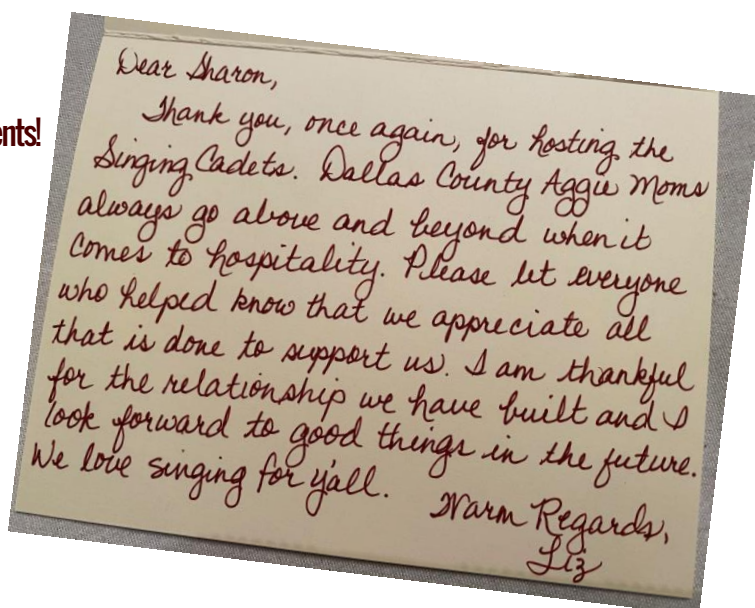 ents!
Dear Sharon,
Thank you, once again, for hosting the
Singing Cadets. Dallas County Aggie Moms
always go above and beyond when it
comes to hospitality. Please let everyone
who helped know that we appreciate all
that is done to support us. I am thankful
for the relationship we have built and I
look forward to good things in the future.
We love singing for y'all.
Warm Regards,
Liz